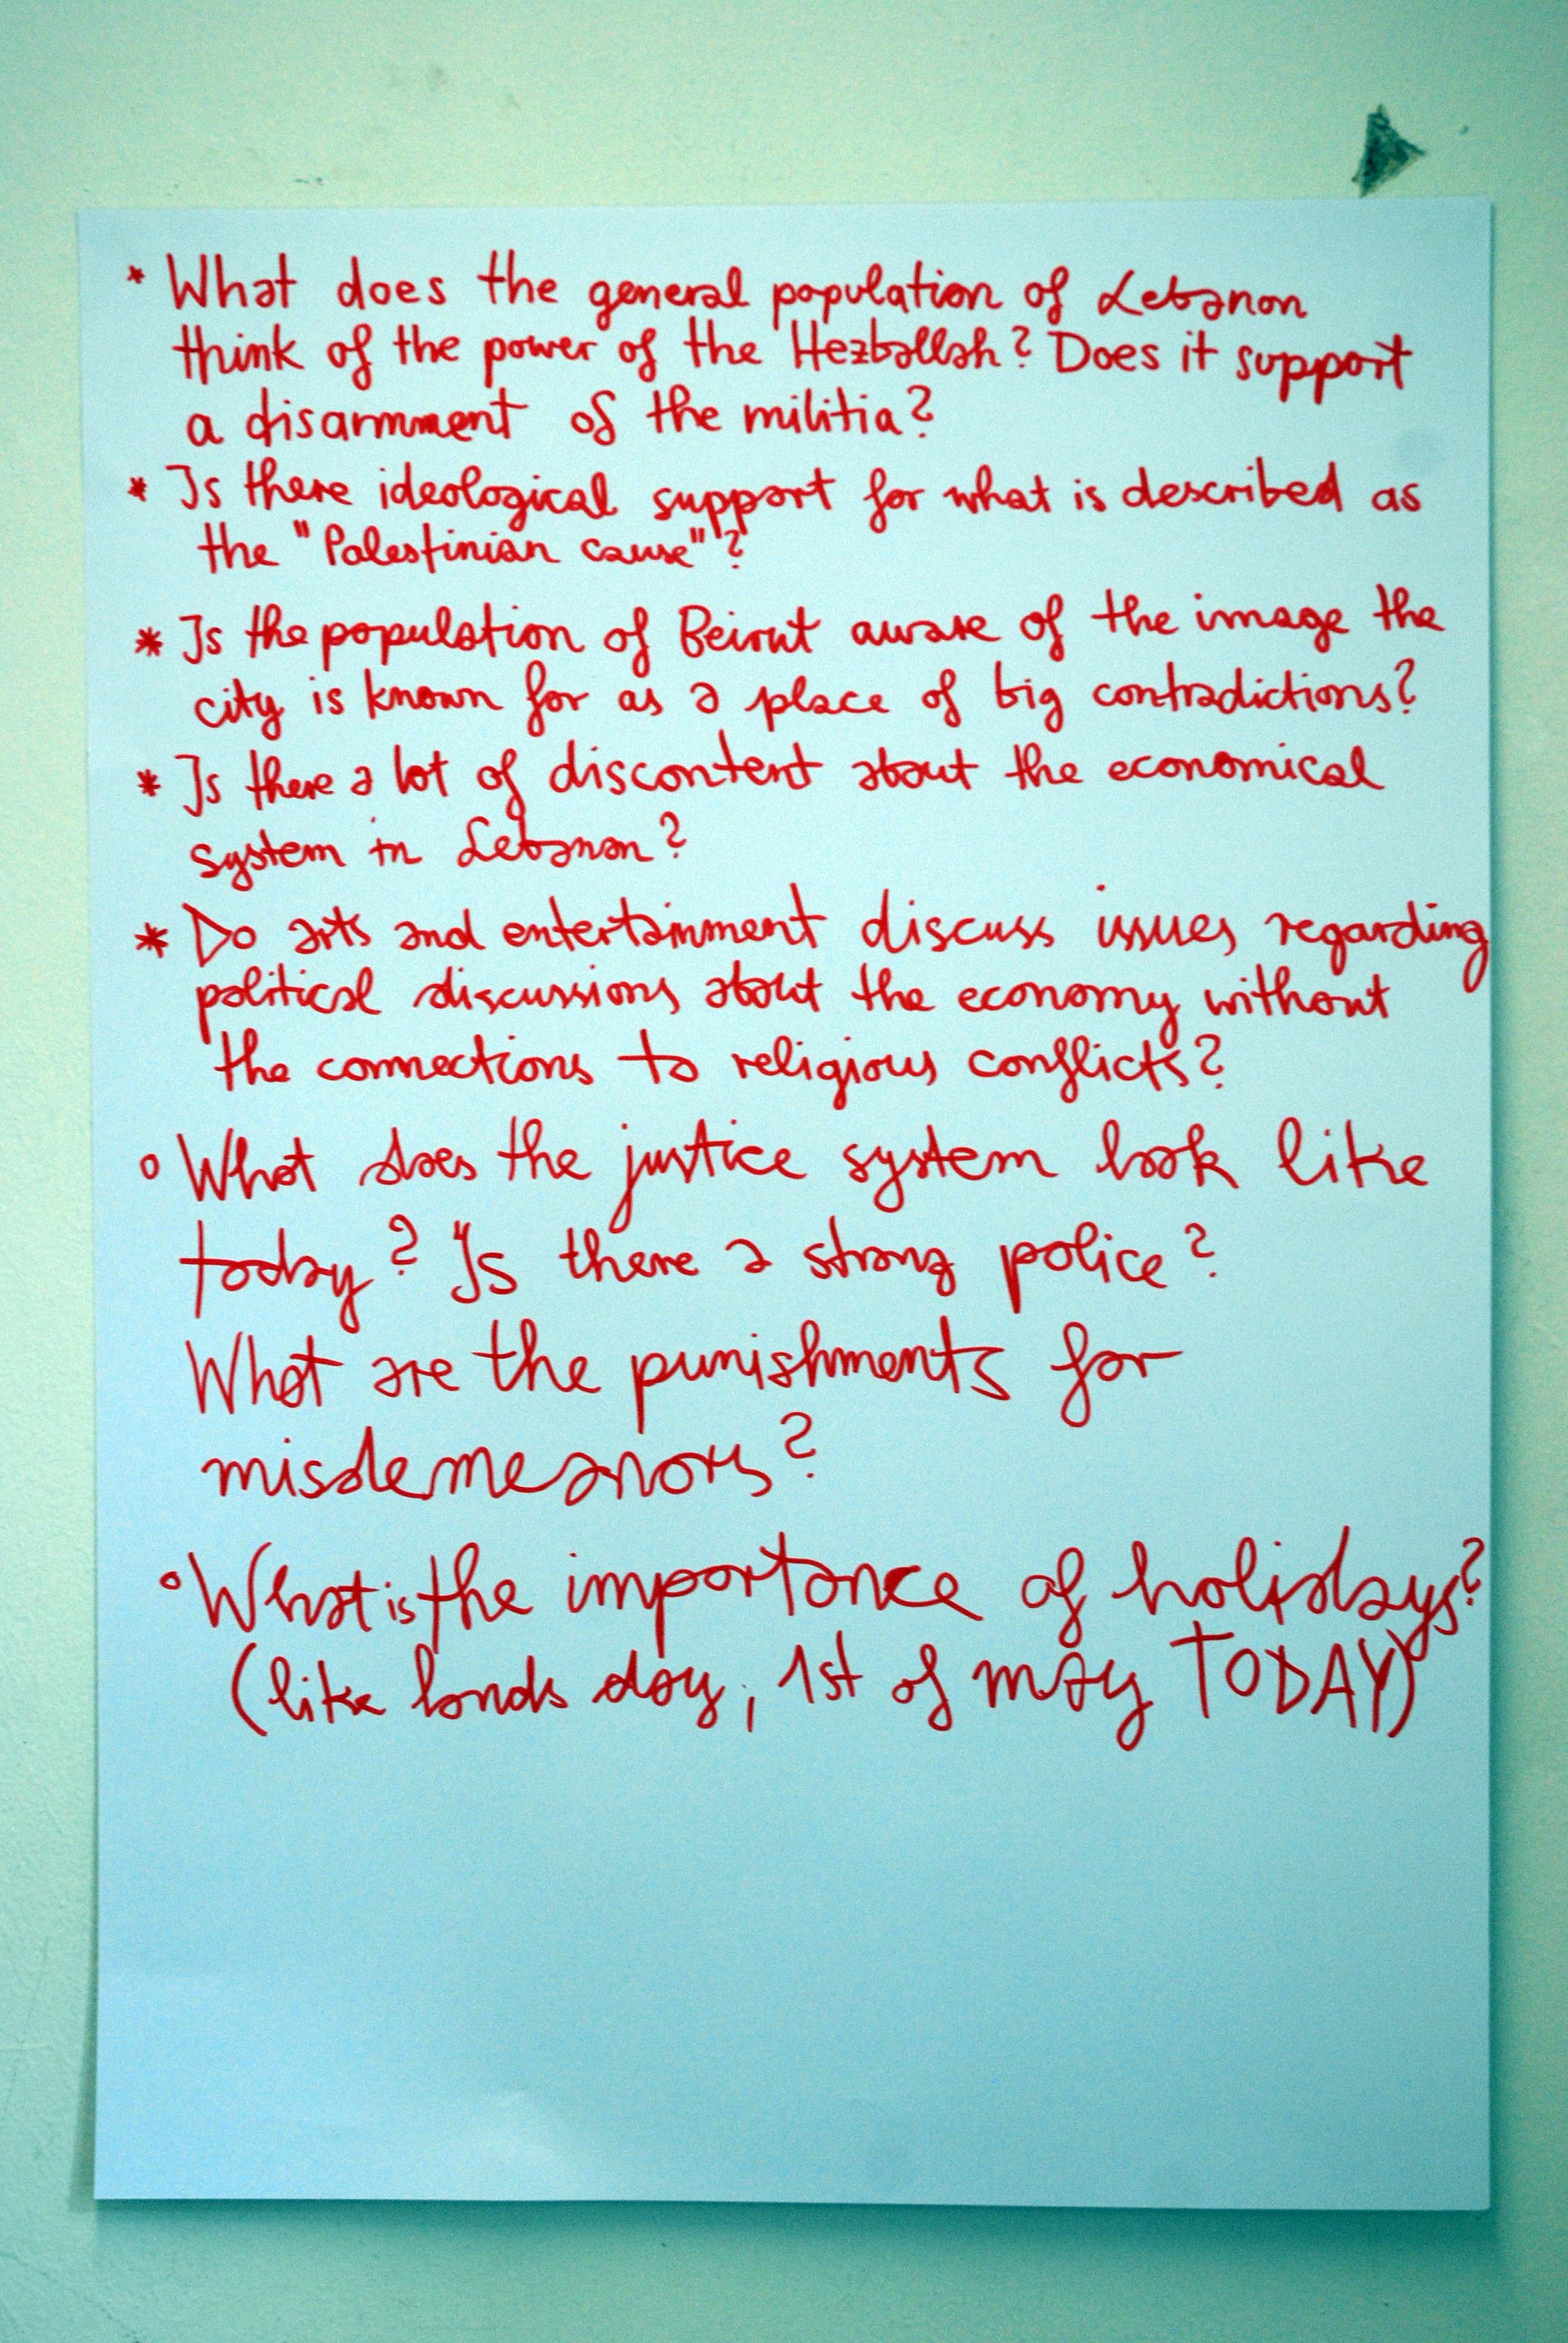 * What does the general population of Lebanon
think of the power of the Hezbollah? Does it support
a disarmment of the militia?
* Is there ideological support for what is described as
the "Palestinian cause"?
* Is the population of Beirut aware of the image the
city is known for as a place of big contradictions?
* Is there a lot of discontent about the economical
system in Lebanon?
* Do arts and entertainment discuss issues regarding
political discussions about the economy without
the connections to religious conflicts?
° What does the justice system look like
today? Is there a strong police?
What are the punishments for
misdemeanors?
° What is the importance of holidays?
(like lands day, 1st of may TODAY)